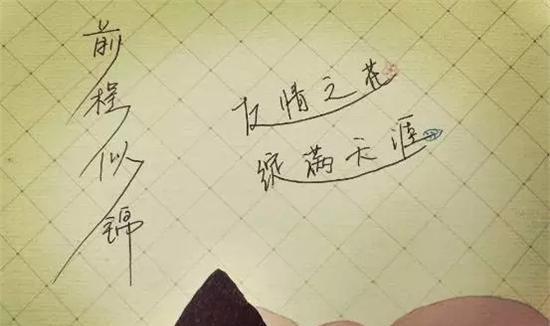 前程似锦
友情之花
绽满天涯